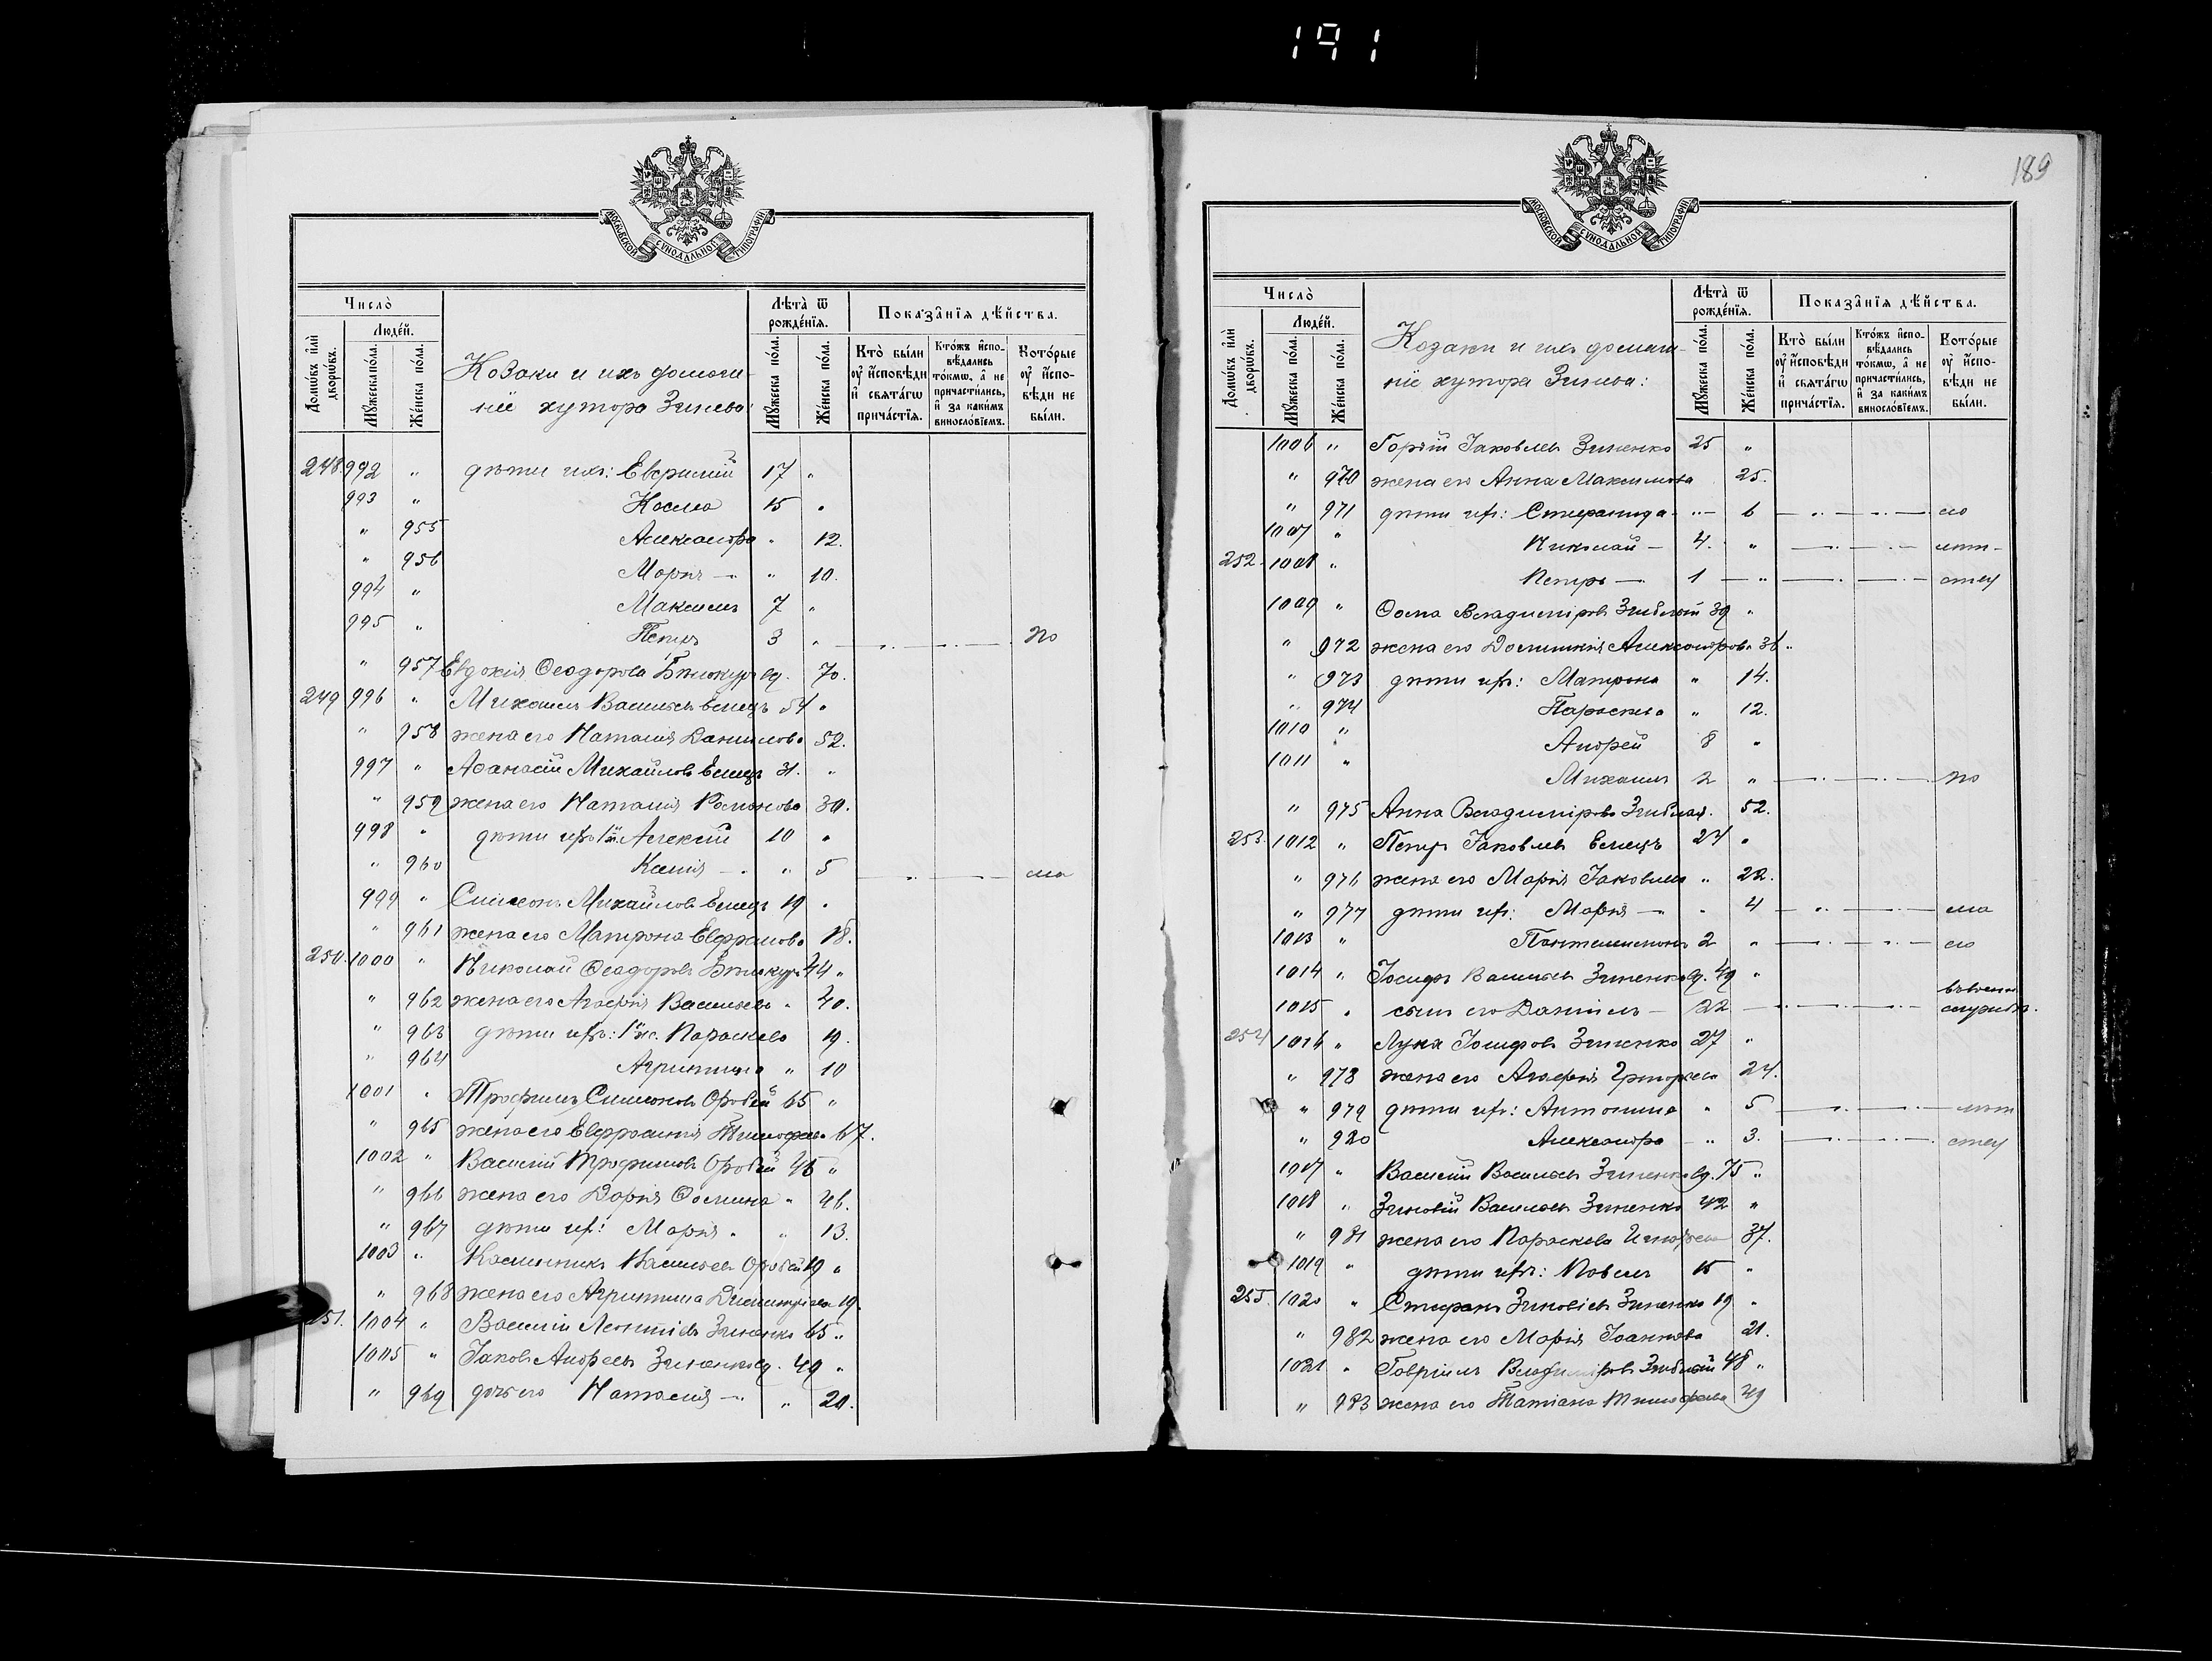 191
МОСКОВСКОЙ СѴНОДАЛЬНОЙ ТИПОГРАФІИ
Число̀
Люде́й.
Домѡ́въ и҆лѝ дворѡ́въ.
Мꙋ́жеска по́ла.
Же́нска по́ла.
Козаки и ихъ домаш-
ніе хутора Зинева:
Лѣта̀ ѿ рожде́нїѧ.
Мꙋ́жеска по́ла.
Же́нска по́ла.
Показа̂нїѧ дѣ́йства.
Кто̀ бы́ли оу҆ и҆́сповѣди и҆ свѧта́гѡ прича́стїѧ.
Кто́жъ и҆спо-вѣ́дались то́кмѡ, а҆ не причасти́лись, и҆ за каки́мъ винослóвїемъ.
Кото́рые оу҆ и҆́спо-вѣди не бы́ли.
248. 992 " дѣти ихъ: Евфимій 17 "
993 " Косма 15 "
" 955 Александра " 12.
" 956 Марія — " 10.
994 " Максимъ 7 "
995 " Петръ 3 " по
" 957 Евдокія Ѳеодорова Бѣлокур вд. 70.
249 996 " Михаилъ Васильевъ Емецъ 54 "
" 958 жена его Наталія Данилова 52.
997 " Аѳанасій Михайловъ Емецъ 31. "
" 959 жена его Наталія Романова 30.
998 " дѣти ихъ: Алексій 10 "
" 960 Ксенія — " 5 ма
999 " Симеонъ Михайловъ Емецъ 19 "
" 961 жена его Матрона 18.
250. 1000 " Николай Ѳеодоровъ Бѣлокуръ 44 "
" 962 жена его Агафія Васильева " 40.
" 963 дѣти ихъ: Параскева 19.
" 964 Агрипина " 10
1001 " Трофимъ Симеоновъ Оробей 65 "
" 965 жена его Евфросинія Тимофеева 67.
1002 " Василій Трофимовъ Оробей 45 "
" 966 жена его Дарія Ѳомина " 46.
" 967 дѣти ихъ: Марія " " 13.
1003 " Калинникъ Васильевъ Оробей 19 "
" 968 жена его Агрипина Димитріева 19.
251. 1004 " Василій Леонтіевъ Зиненко 65 "
1005 " Іаковъ Андреевъ Зиненко вд. 49 "
" 969 дочь его Наталія — " 20.
189
МОСКОВСКОЙ СѴНОДАЛЬНОЙ ТИПОГРАФІИ
Число̀
Люде́й.
Домѡ́въ и҆лѝ дворѡ́въ.
Мꙋ́жеска по́ла.
Же́нска по́ла.
Козаки и ихъ домаш-
ніе хутора Зинева:
Лѣта̀ ѿ рожде́нїѧ.
Мꙋ́жеска по́ла.
Же́нска по́ла.
Показа̂нїѧ дѣ́йства.
Кто̀ бы́ли оу҆ и҆́сповѣди и҆ свѧта́гѡ прича́стїѧ.
Кто́жъ и҆спо-вѣ́дались то́кмѡ, а҆ не причасти́лись, и҆ за каки́мъ винослóвїемъ.
Кото́рые оу҆ и҆́спо-вѣди не бы́ли.
1006 " Іаковлевъ Зиненко 25 "
" 970 жена его Анна Максимова 25.
" 971 дѣти ихъ: Степанида "— 6
1007 " Николай — 4. "
252. 1008 " Петръ — 1 — "
1009 " Ѳома Владиміровъ 39 "
" 972 жена его Домникія Александрова 38 "
" 973 дѣти ихъ: Матрона " 14.
" 974 Параскева " 12.
1010 " Андрей 8 "
1011 " Михаилъ 2 " по
" 975 Анна Владимірова 52.
253. 1012 " Петръ Іаковлевъ Емецъ 24 "
" 976 жена его Марія Іаковлева " 22.
" 977 дѣти ихъ: Марія — " 4 ма
1013 " Пантелеимонъ 2 " ло
1014 " Іосифъ Васильевъ Зиненко вд. 49 "
1015 " сынъ его Даніилъ — 22 въ военн. службѣ.
254 1016 " Лука Іосифовъ Зиненко 27 "
" 978 жена его Агафія Григорьева 24.
" 979 дѣти ихъ: Антонина " 5
" 980 Александра — " 3.
1017 " Василій Васильевъ Зиненко вд. 75 "
1018 " Зиновій Васильевъ Зиненко 42 "
" 981 жена его Параскева 37.
1019 " дѣти ихъ: Павелъ 15 "
255. 1020 " Стефанъ Зиновіевъ Зиненко 19 "
" 982 жена его Марія Іоаннова 21.
1021 " Гавріилъ Владиміровъ 48 "
" 983 жена его Татіана Тимофеева 49